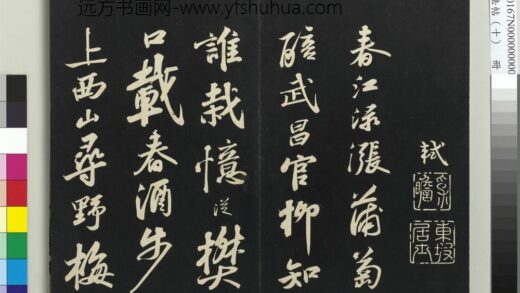 远方书画网- www.yfshuhua.com
0167N000000000
帖(十) 冊
軾
東坡居士
春江渌漲蒲萄
醅武昌官柳知
誰栽憶從樊
口載春酒步
上西山尋野梅